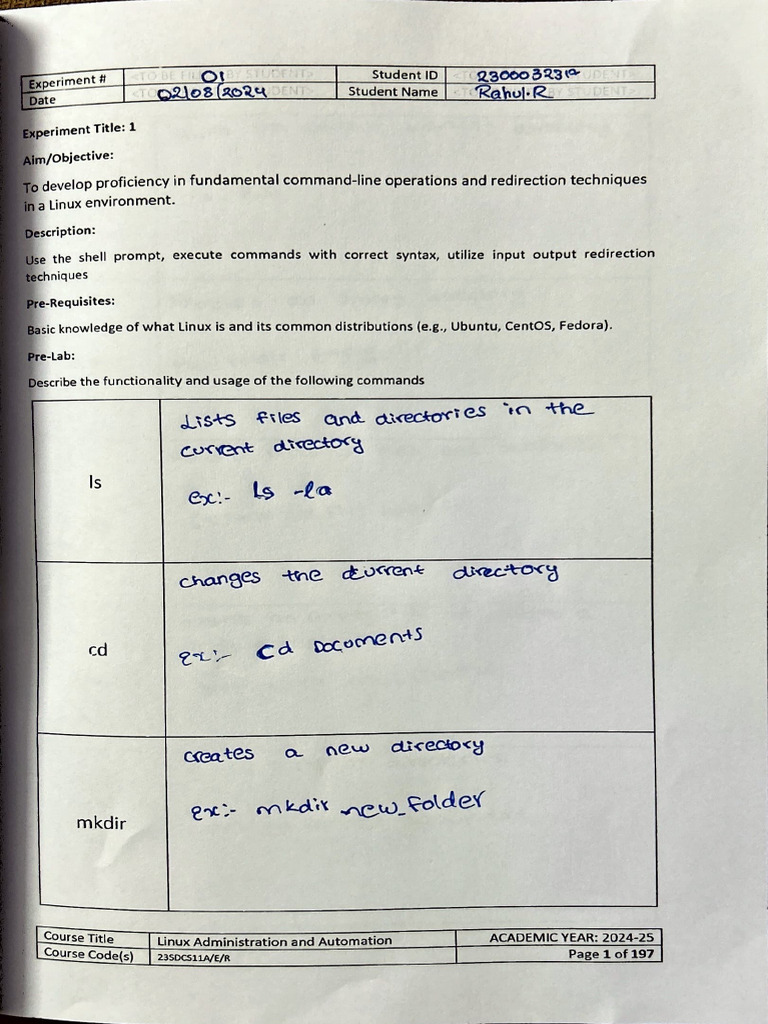 Experiment # 01 Student ID
Date 02/08/2024 Student Name Rahul.R
Experiment Title: 1
Aim/Objective:
To develop proficiency in fundamental command-line operations and redirection techniques
in a Linux environment.
Description:
Use the shell prompt, execute commands with correct syntax, utilize input output redirection
techniques
Pre-Requisites:
Basic knowledge of what Linux is and its common distributions (e.g., Ubuntu, CentOS, Fedora).
Pre-Lab:
Describe the functionality and usage of the following commands
Lists files and directories in the
current directory
ls
ex:- ls -la
changes the current directory
cd
ex:- cd Documents
creates a new directory
ex:- mkdir new_folder
mkdir
Course Title Linux Administration and Automation ACADEMIC YEAR: 2024-25
Course Code(s) 23SDCS11A/E/R Page 1 of 197